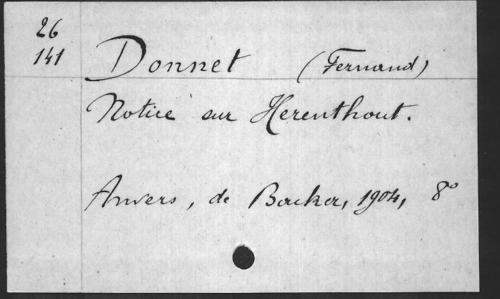 26
141
Donnet (Fernand)
Notice sur Herenthout.
Anvers, de Backer, 1904, 8°